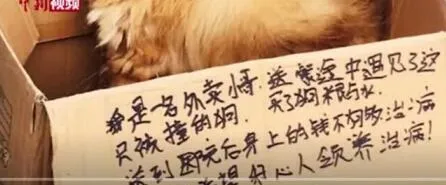 中新视频
我是一名外卖小哥，送餐途中遇见了这
只被撞的狗，买了狗粮与水
送到医院后身上的钱不够多治病
希望好心人领养治病！